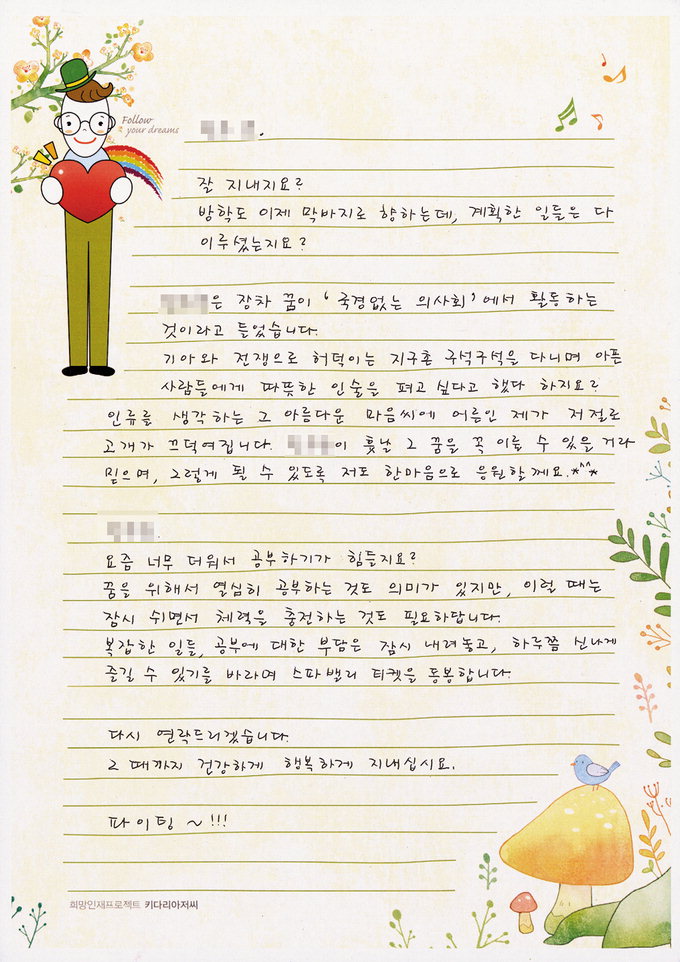 Follow
your dreams
.
잘 지내지요?
방학도 이제 막바지로 향하는데, 계획한 일들은 다
이루셨는지요?
은 장차 꿈이 '국경없는 의사회'에서 활동하는
것이라고 들었습니다.
기아와 전쟁으로 허덕이는 지구촌 구석구석을 다니며 아픈
사람들에게 따뜻한 인술을 펴고 싶다고 했다 하지요?
인류를 생각하는 그 아름다운 마음씨에 어른인 제가 저절로
고개가 끄덕여집니다. 이 훗날 그 꿈을 꼭 이룰 수 있을 거라
믿으며, 그렇게 될 수 있도록 저도 한마음으로 응원할께요.*^^*
.
요즘 너무 더워서 공부하기가 힘들지요?
꿈을 위해서 열심히 공부하는 것도 의미가 있지만, 이럴 때는
잠시 쉬면서 체력을 충전하는 것도 필요하답니다.
복잡한 일들, 공부에 대한 부담은 잠시 내려놓고, 하루쯤 신나게
즐길 수 있기를 바라며 스파밸리 티켓을 동봉합니다.
다시 연락드리겠습니다.
그 때까지 건강하게 행복하게 지내십시요.
파이팅 ~!!!
희망인재프로젝트 키다리아저씨